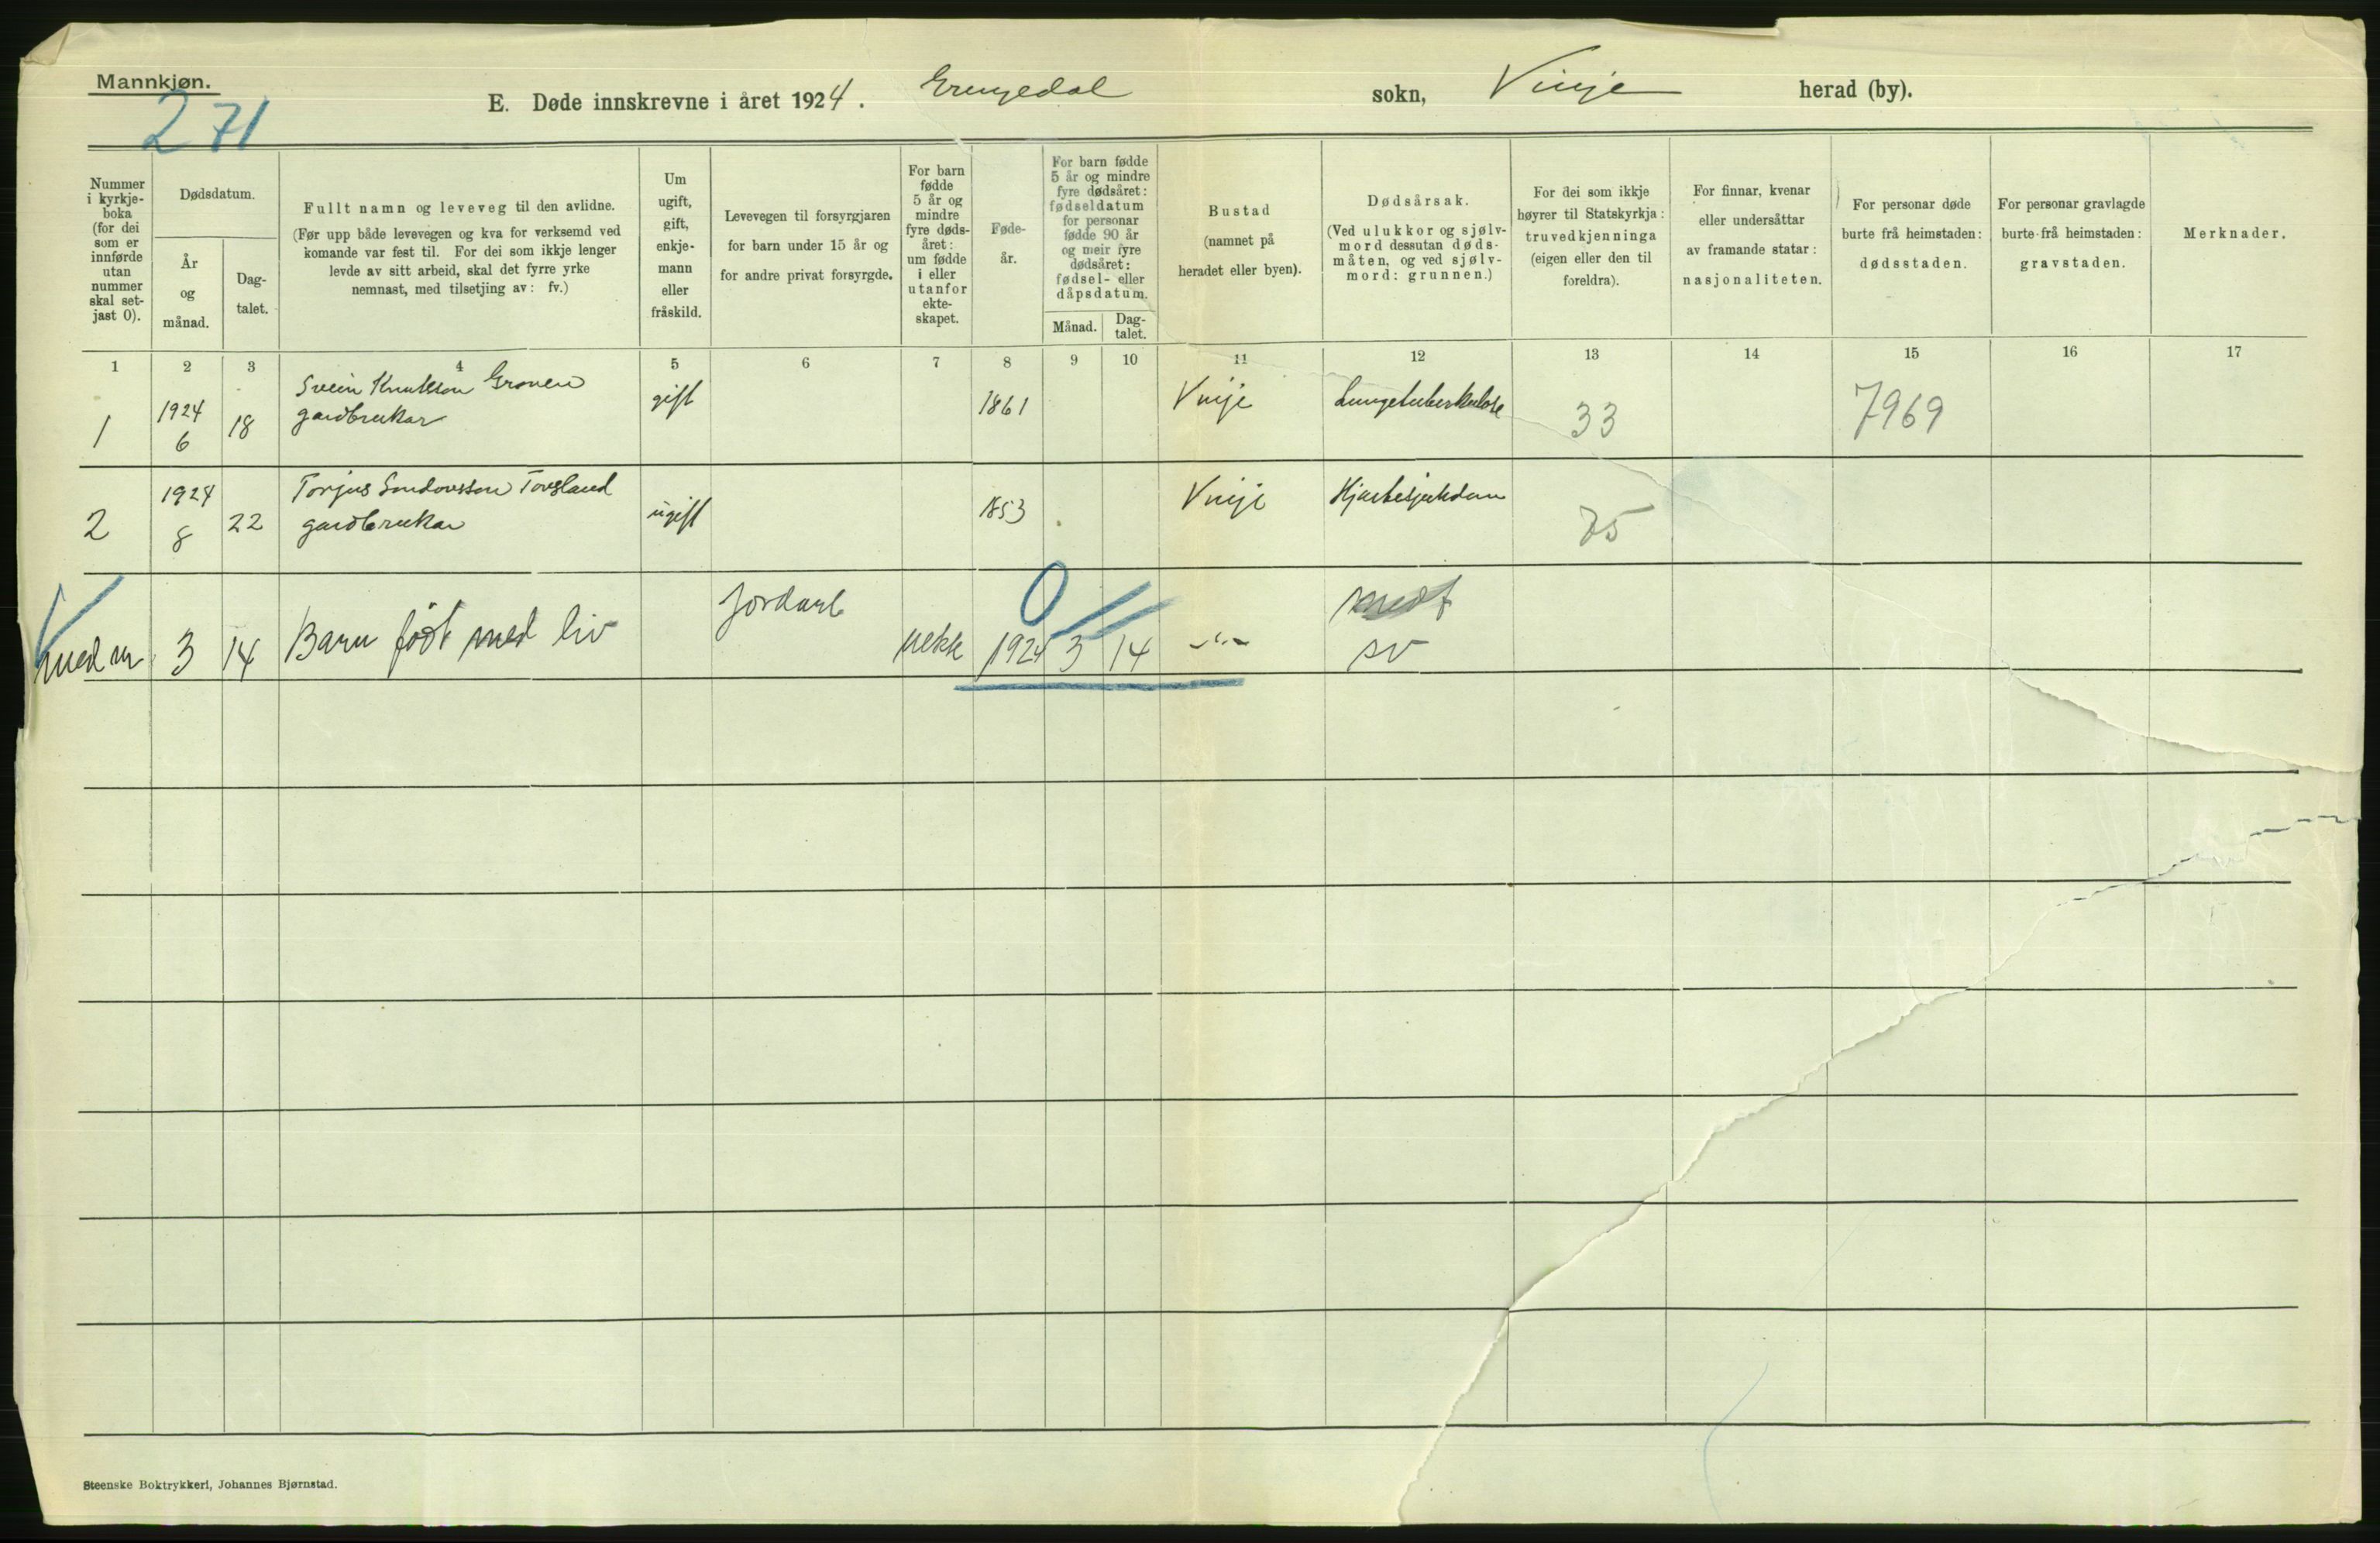 Mannkjøn.
271
E. Døde innskrevne i året 1924. Grungedal sokn, Vinje herad (by).
Nummer
i kyrkje-
boka
(for dei
som er
innførde
utan
nummer
skal set-
jast 0).
Dødsdatum.
År
og
månad.
Dag-
talet.
Fullt namn og leveveg til den avlidne.
(Før upp både levevegen og kva for verksemd ved
komande var fest til. For dei som ikkje lenger
levde av sitt arbeid, skal det fyrre yrke
nemnast, med tilsetjing av: fv.)
Um
ugift,
gift,
enkje-
mann
eller
fråskild.
Levevegen til forsyrgjaren
for barn under 15 år og
for andre privat forsyrgde.
For barn
fødde
5 år og
mindre
fyre døds-
året:
um fødde
i eller
utanfor
ekte-
skapet.
Føde-
år.
For barn fødde
5 år og mindre
fyre dødsåret:
fødseldatum
for personar
fødde 90 år
og meir fyre
dødsåret:
fødsel- eller
dåpsdatum.
Månad.
Dag-
talet.
Bustad
(namnet på
heradet eller byen).
Dødsårsak.
(Ved ulukkor og sjølv-
mord dessutan døds-
måten, og ved sjølv-
mord: grunnen.)
For dei som ikkje
høyrer til Statskyrkja:
truvedkjenninga
(eigen eller den til
foreldra).
For finnar, kvenar
eller undersåttar
av framande statar:
nasjonaliteten.
For personar døde
burte frå heimstaden:
dødsstaden.
For personar gravlagde
burte frå heimstaden:
gravstaden.
Merknader.
1 2 3 4 5 6 7 8 9 10 11 12 13 14 15 16 17
1 1924 6 18 Svein Knutsson Groven gift 1861 Vinje Lungetuberkulose 33 7969
gardbrukar
2 1924 8 22 Torjus Sondovsson Tovsland ugift 1853 Vinje Hjartesjukdom 75
gardbrukar
3 14 Barn født med liv jordarb ekte 1924 3 14 -"- sv
0
Steenske Boktrykkeri, Johannes Bjørnstad.